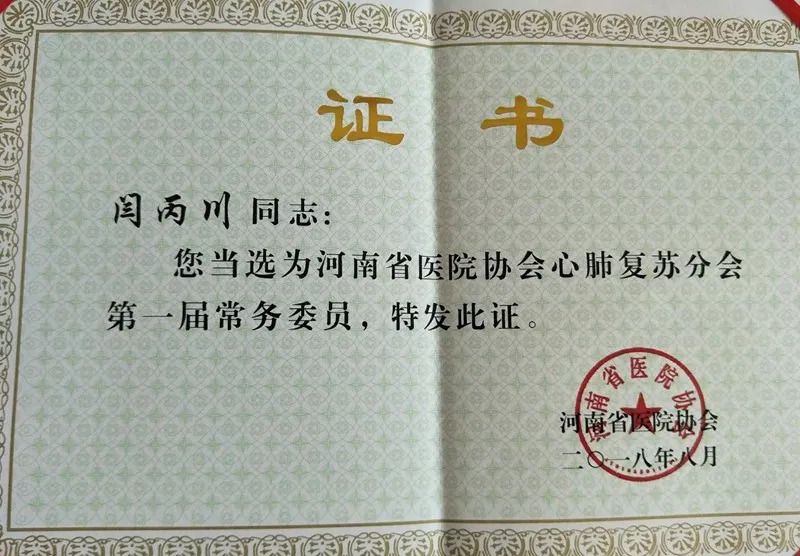 证 书
闫丙川 同志：
您当选为河南省医院协会心肺复苏分会
第一届常务委员，特发此证。
河南省医院协会
河南省医院协会
二〇一八年八月